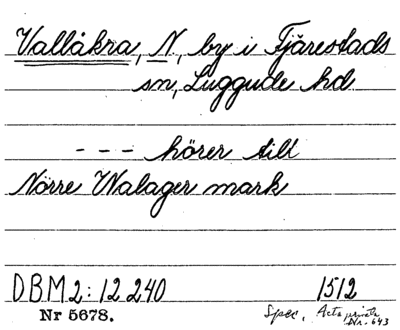 Vallåkra, N, by i Fjärestads
sn, Luggude hd
--- hörer till
Nörre Walager mark
DBM 2:12 240 1512
Nr 5678. Spec. Acta privata Nr. 643